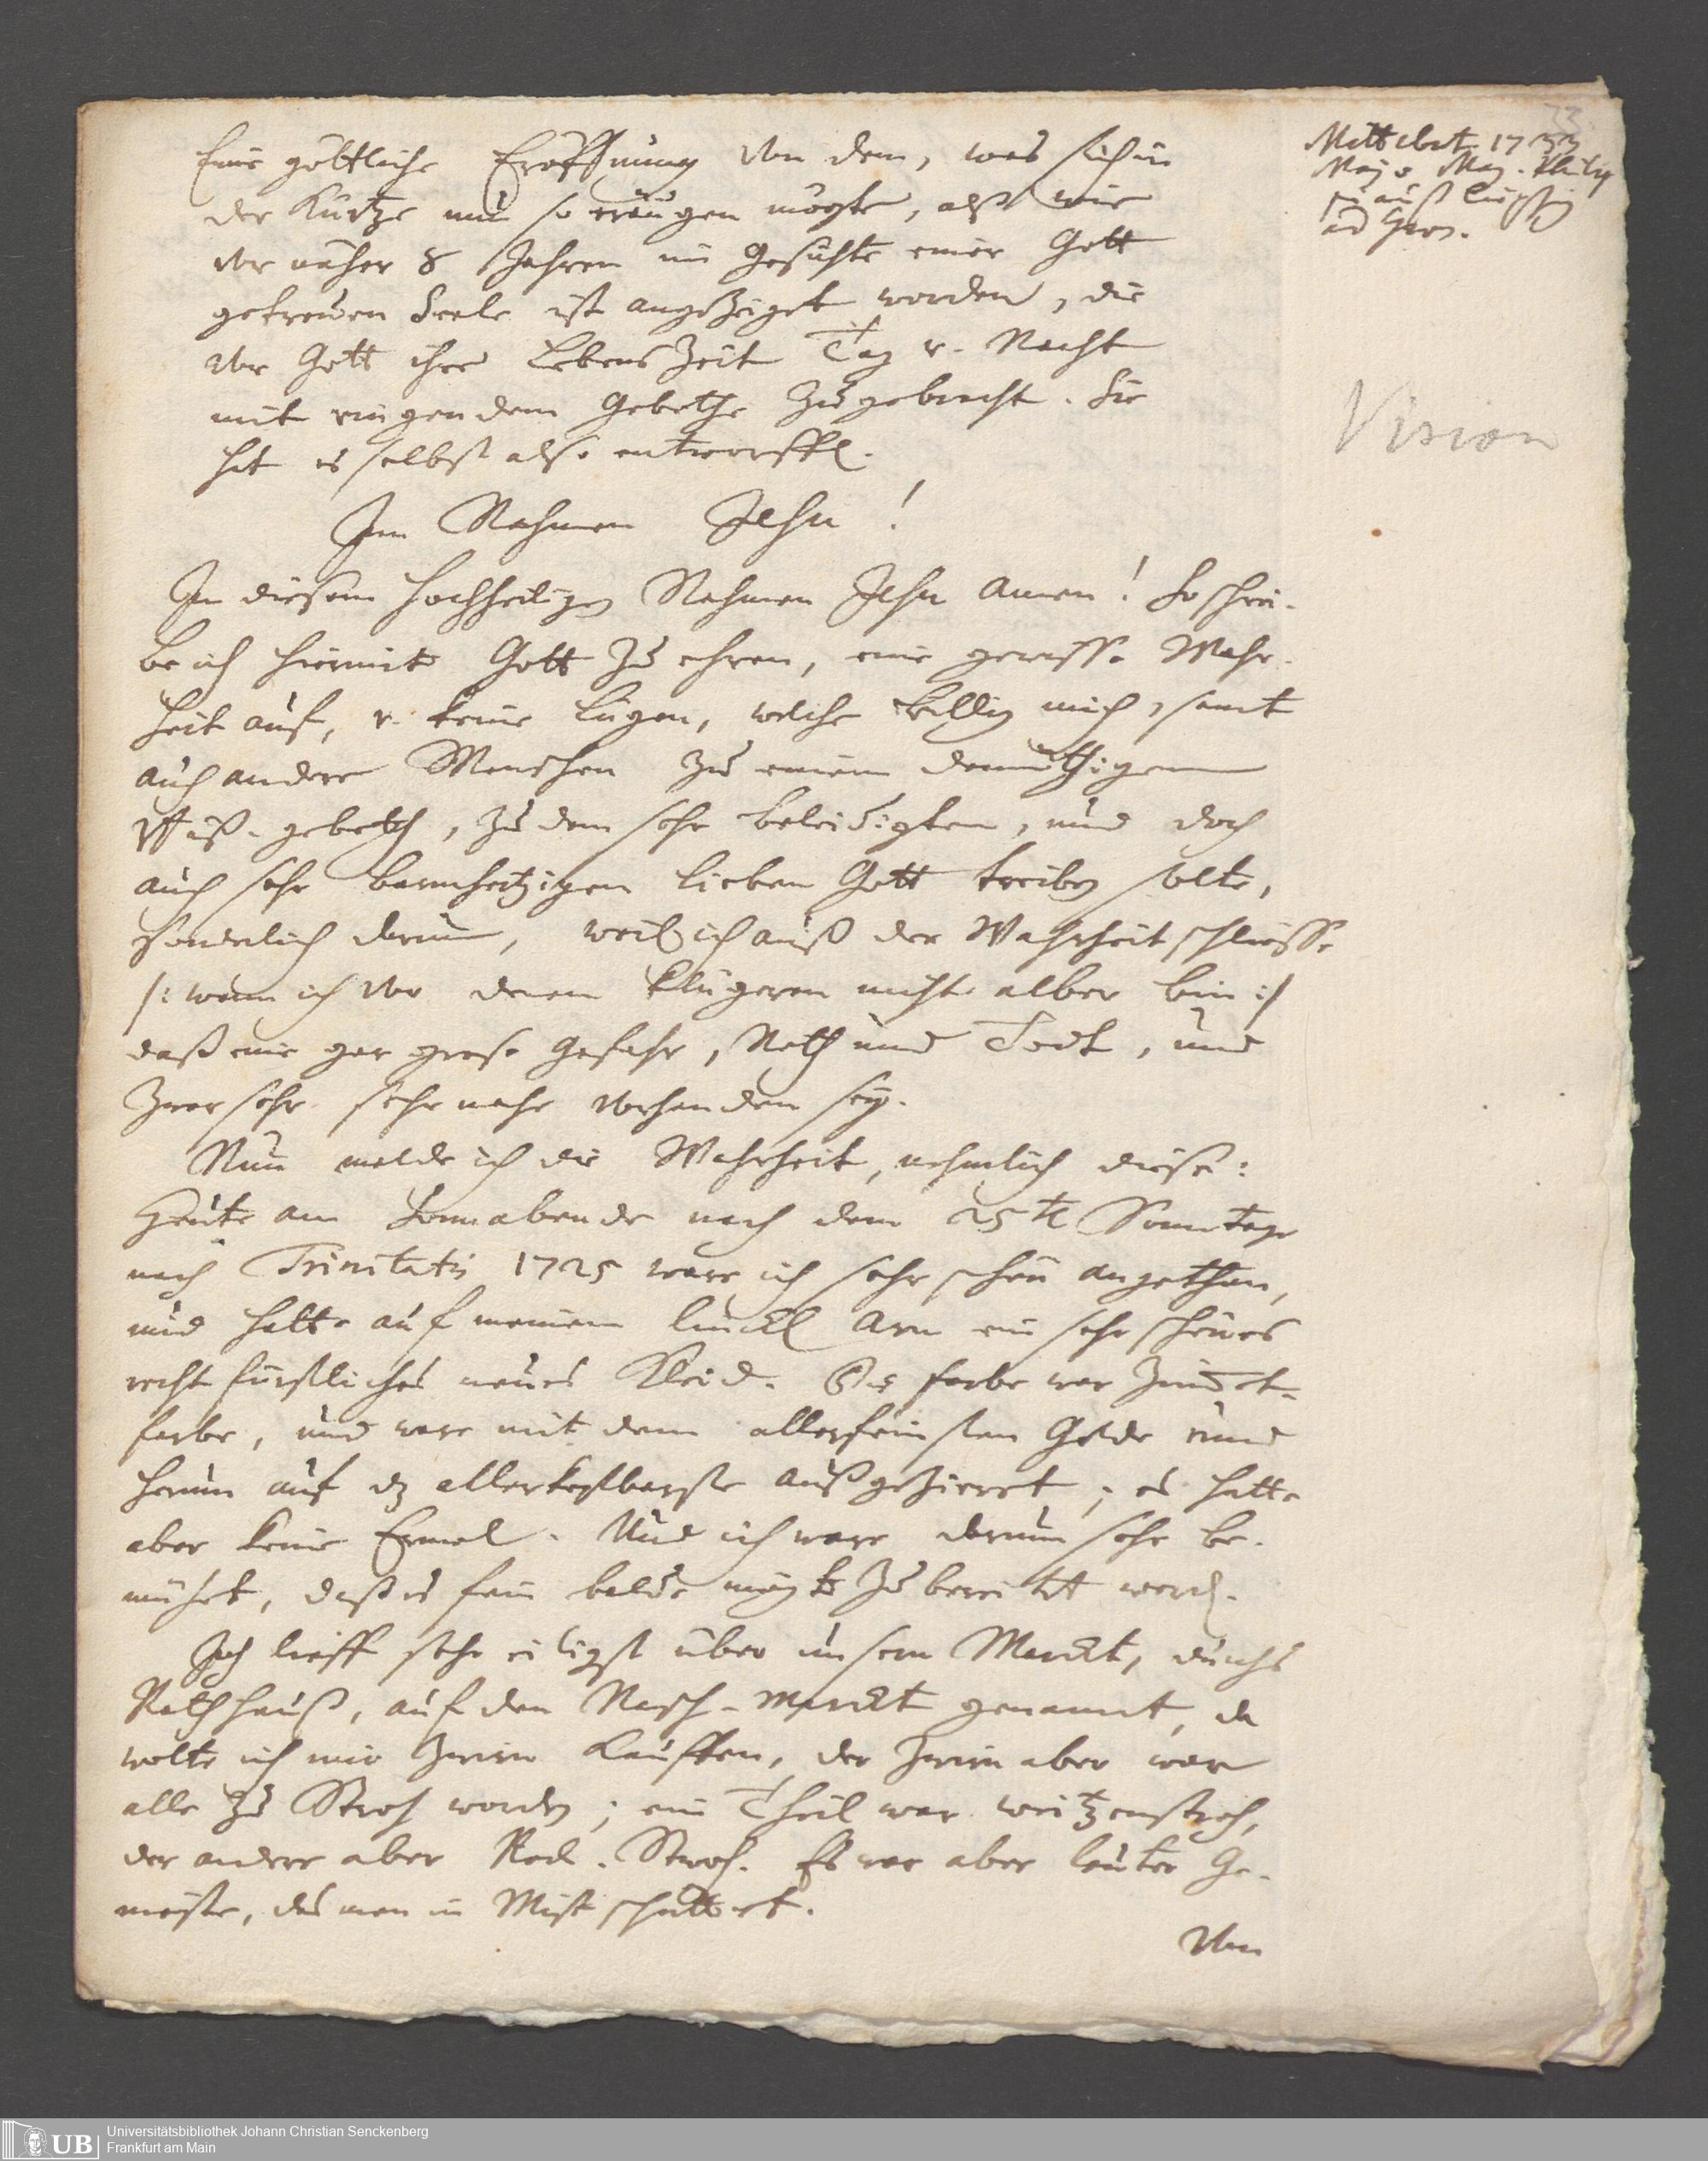 Eine göttliche Eröffnung von dem, was sich in
der Kürtze nun so eräugen mögte, alß wie
vor näher 8 Jahren im Gesichte einer Gott
getreuen Seele ist angezeiget worden, die
vor Gott ihre Lebens Zeit Tag v. Nacht
mit ringendem Gebethe zugebracht. Sie
hat es selbst also entworffen.
Im Nahmen Jesu!
In diesem hochheiligen Nahmen Jesu Amen! So schrei-
be ich hiermit Gott zu ehren, eine gewisse Wahr-
heit auf, v. keine Lügen, welche billig mich, samt
auch andere Menschen zu einem demüthigen
gebeth, zu dem sehr beleidigten, und doch
auch sehr barmhertzigen lieben Gott treiben solte,
sonderlich darum, weil ich auß der Wahrheit schliesse
/: wann ich vor denen klügeren nicht alber bin :/
daß eine gar grose Gefahr, Noth und Todt, und
zwar sehr sehr nahe vorhanden sey.
Nun melde ich die Wahrheit, nehmlich diese:
Heute am Sonnabende nach dem 25ten Sonntage
nach Trinitatis 1725 ware ich sehr schön angethan,
und hatte auf meinem lincken Arm ein sehr schönes
recht fürstliches neues Kleid. Die farbe war
farbe, und ware mit dem allerfeinsten Golde rund
herum auf dz allerkostbarste außgezieret; es hatte
aber keine Ermel. Und ich ware darum sehr be-
mühet, daß es fein balde mögte zubereitet werden.
Ich lieff sehr eiligst über unsern Marckt, durchs
Rathhauß, auf den Nasch-Marckt genannt, da
wolte ich mir Zwirn kauffen, der Zwirn aber war
alle zu Stroh worden; ein Theil war weitzenstroh,
der andere aber Stroh. Es war aber lauter Ge-
, das man in Mist schüttet.
Von
Mitt 1733
Majo Mag.
auß Leipzig
ad
Vision
33
Universitätsbibliothek Johann Christian Senckenberg
Frankfurt am Main
UB